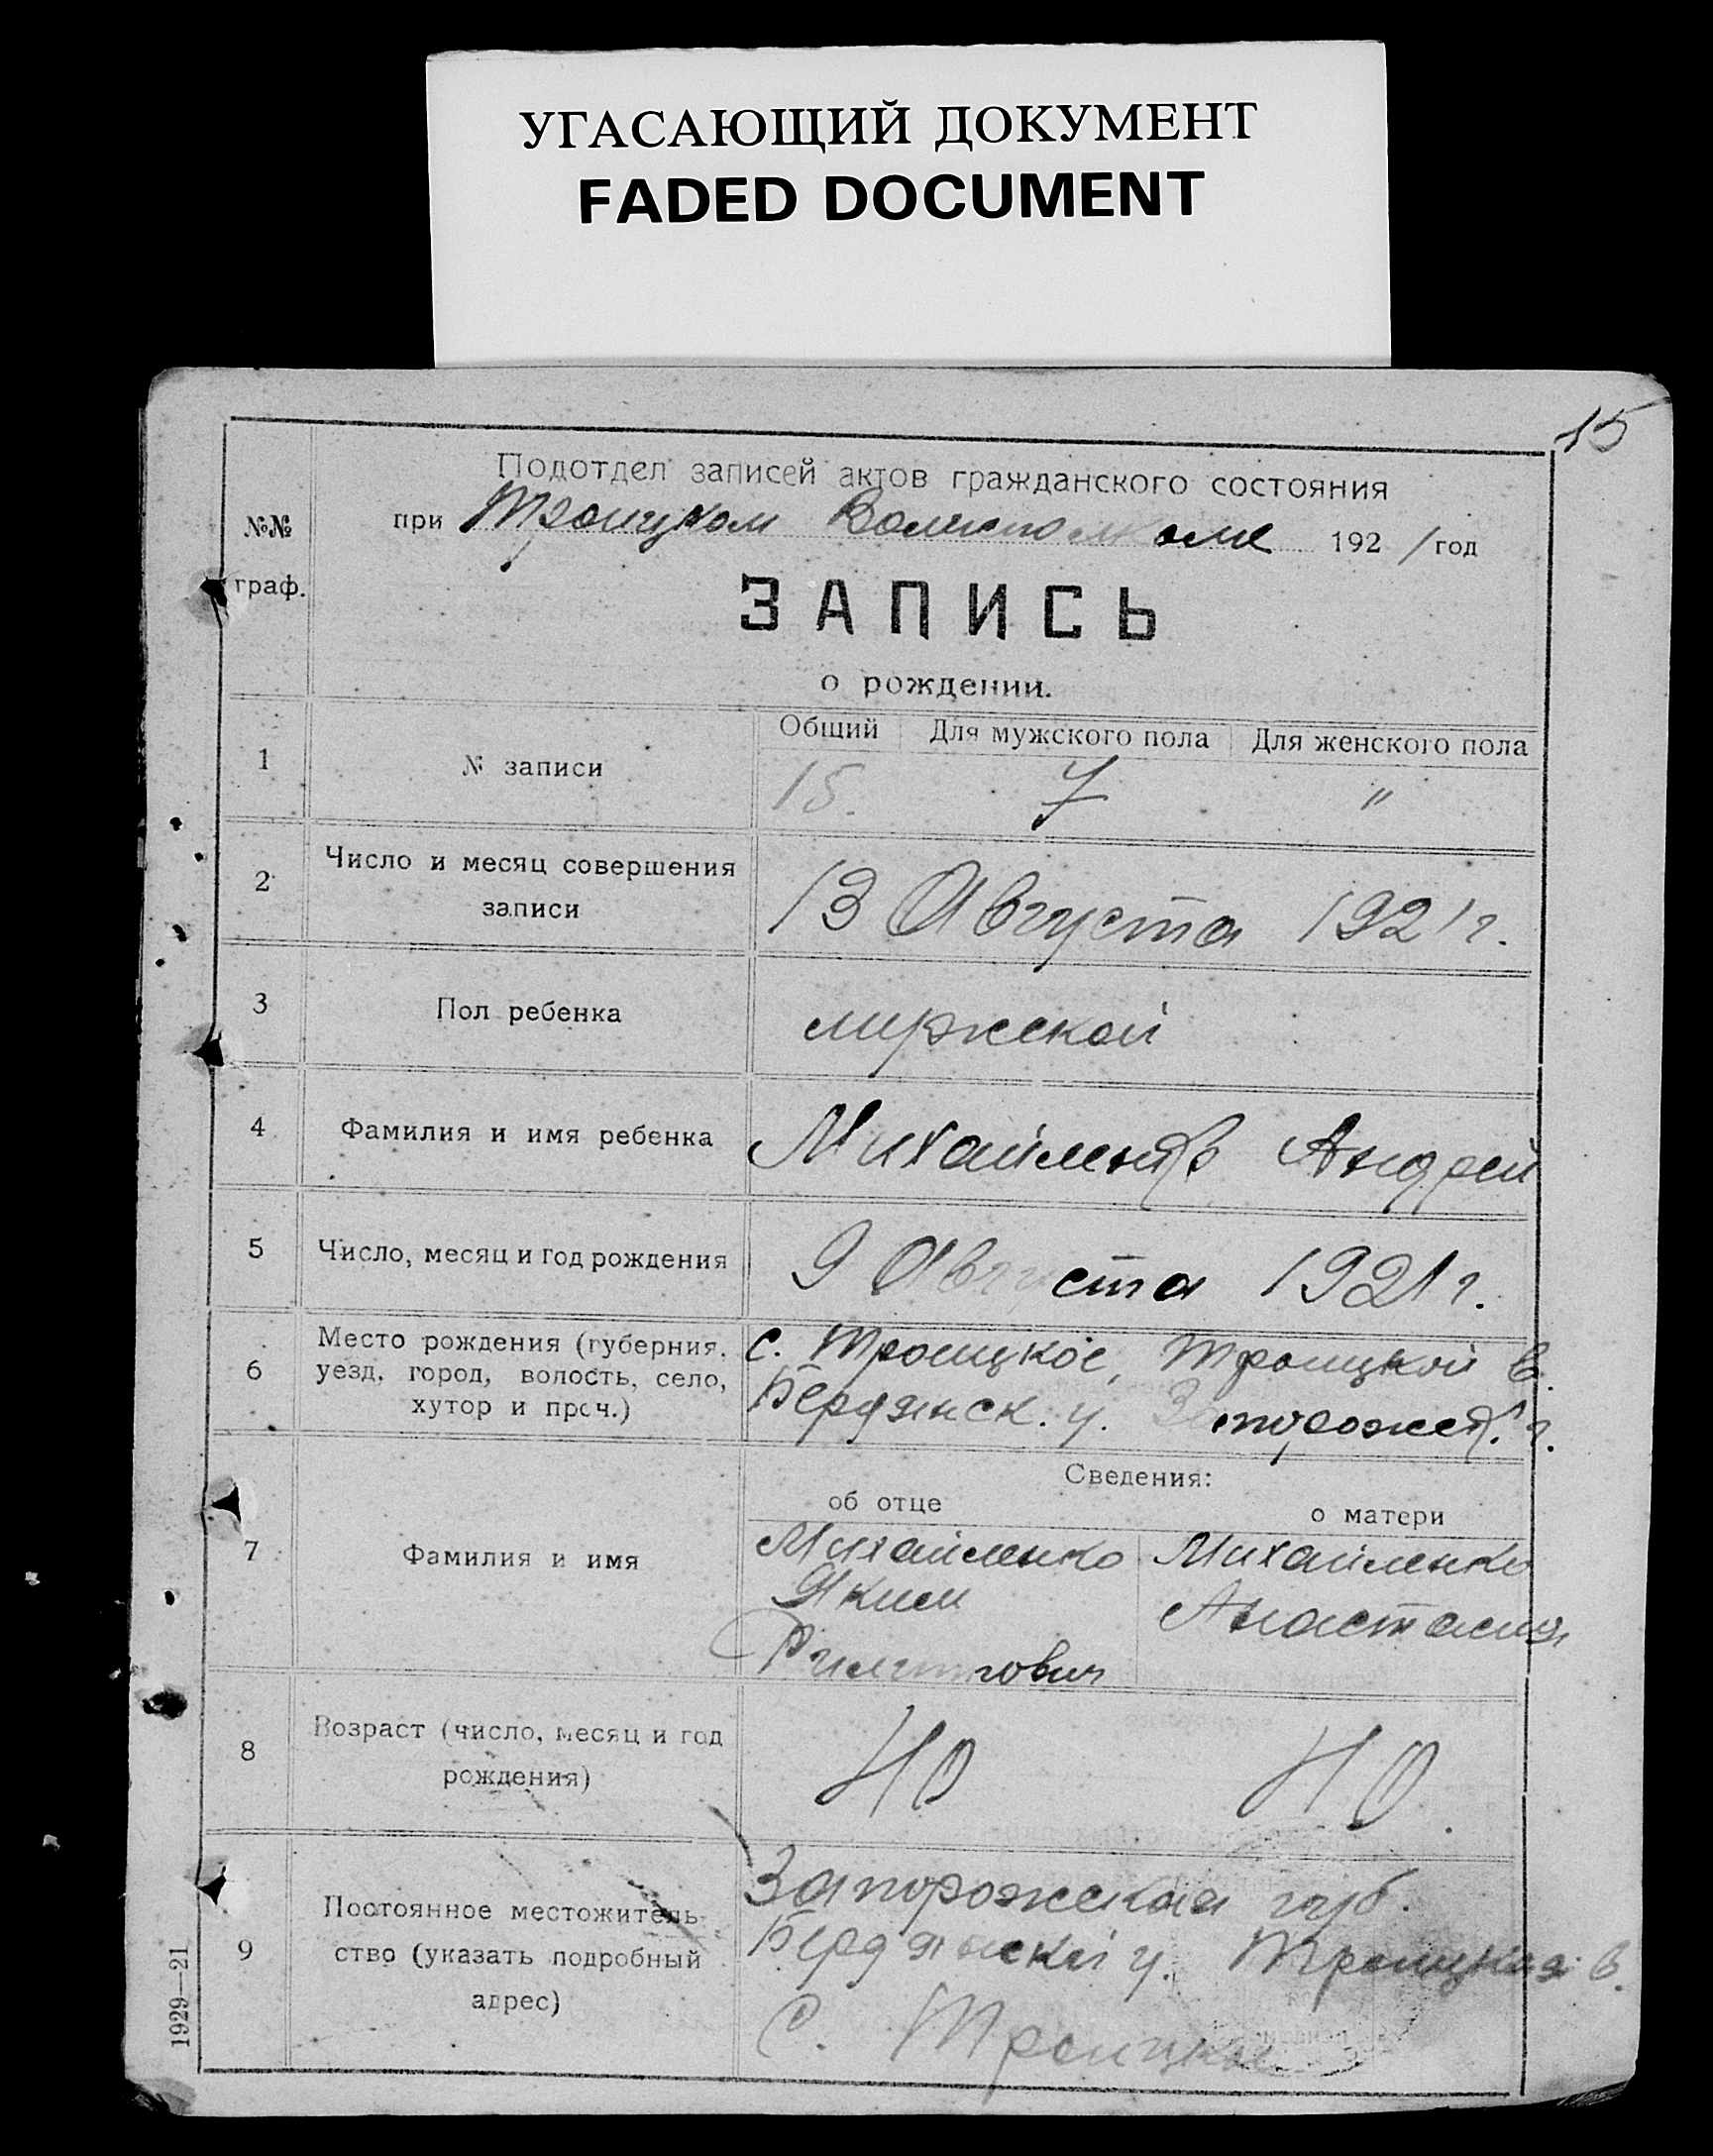 УГАСАЮЩИЙ ДОКУМЕНТ
FADED DOCUMENT
15
№№ граф.
Подотдел записей актов гражданского состояния
при Троицком Волисполкоме 1921 год
ЗАПИСЬ
о рождении.
Общий Для мужского пола Для женского пола
1 № записи 15. 7 "
2 Число и месяц совершения
записи
13 Августа 1921 г.
3 Пол ребенка мужской
4 Фамилия и имя ребенка Михайленко Андрей
5 Число, месяц и год рождения 9 Августа 1921 г.
6 Место рождения (губерния,
уезд, город, волость, село,
хутор и проч.)
с. Троицкое, Троицкой в.
Бердянск. у. Запорожск. г.
Сведения:
об отце о матери
7 Фамилия и имя
Михайленко Михайленко
Яким Анастасия
8 Возраст (число, месяц и год
рождения)
40 40
9 Постоянное местожитель-
ство (указать подробный
адрес)
Запорожская губ.
Бердянский у. Троицкая в.
С. Троицкое
1929—21